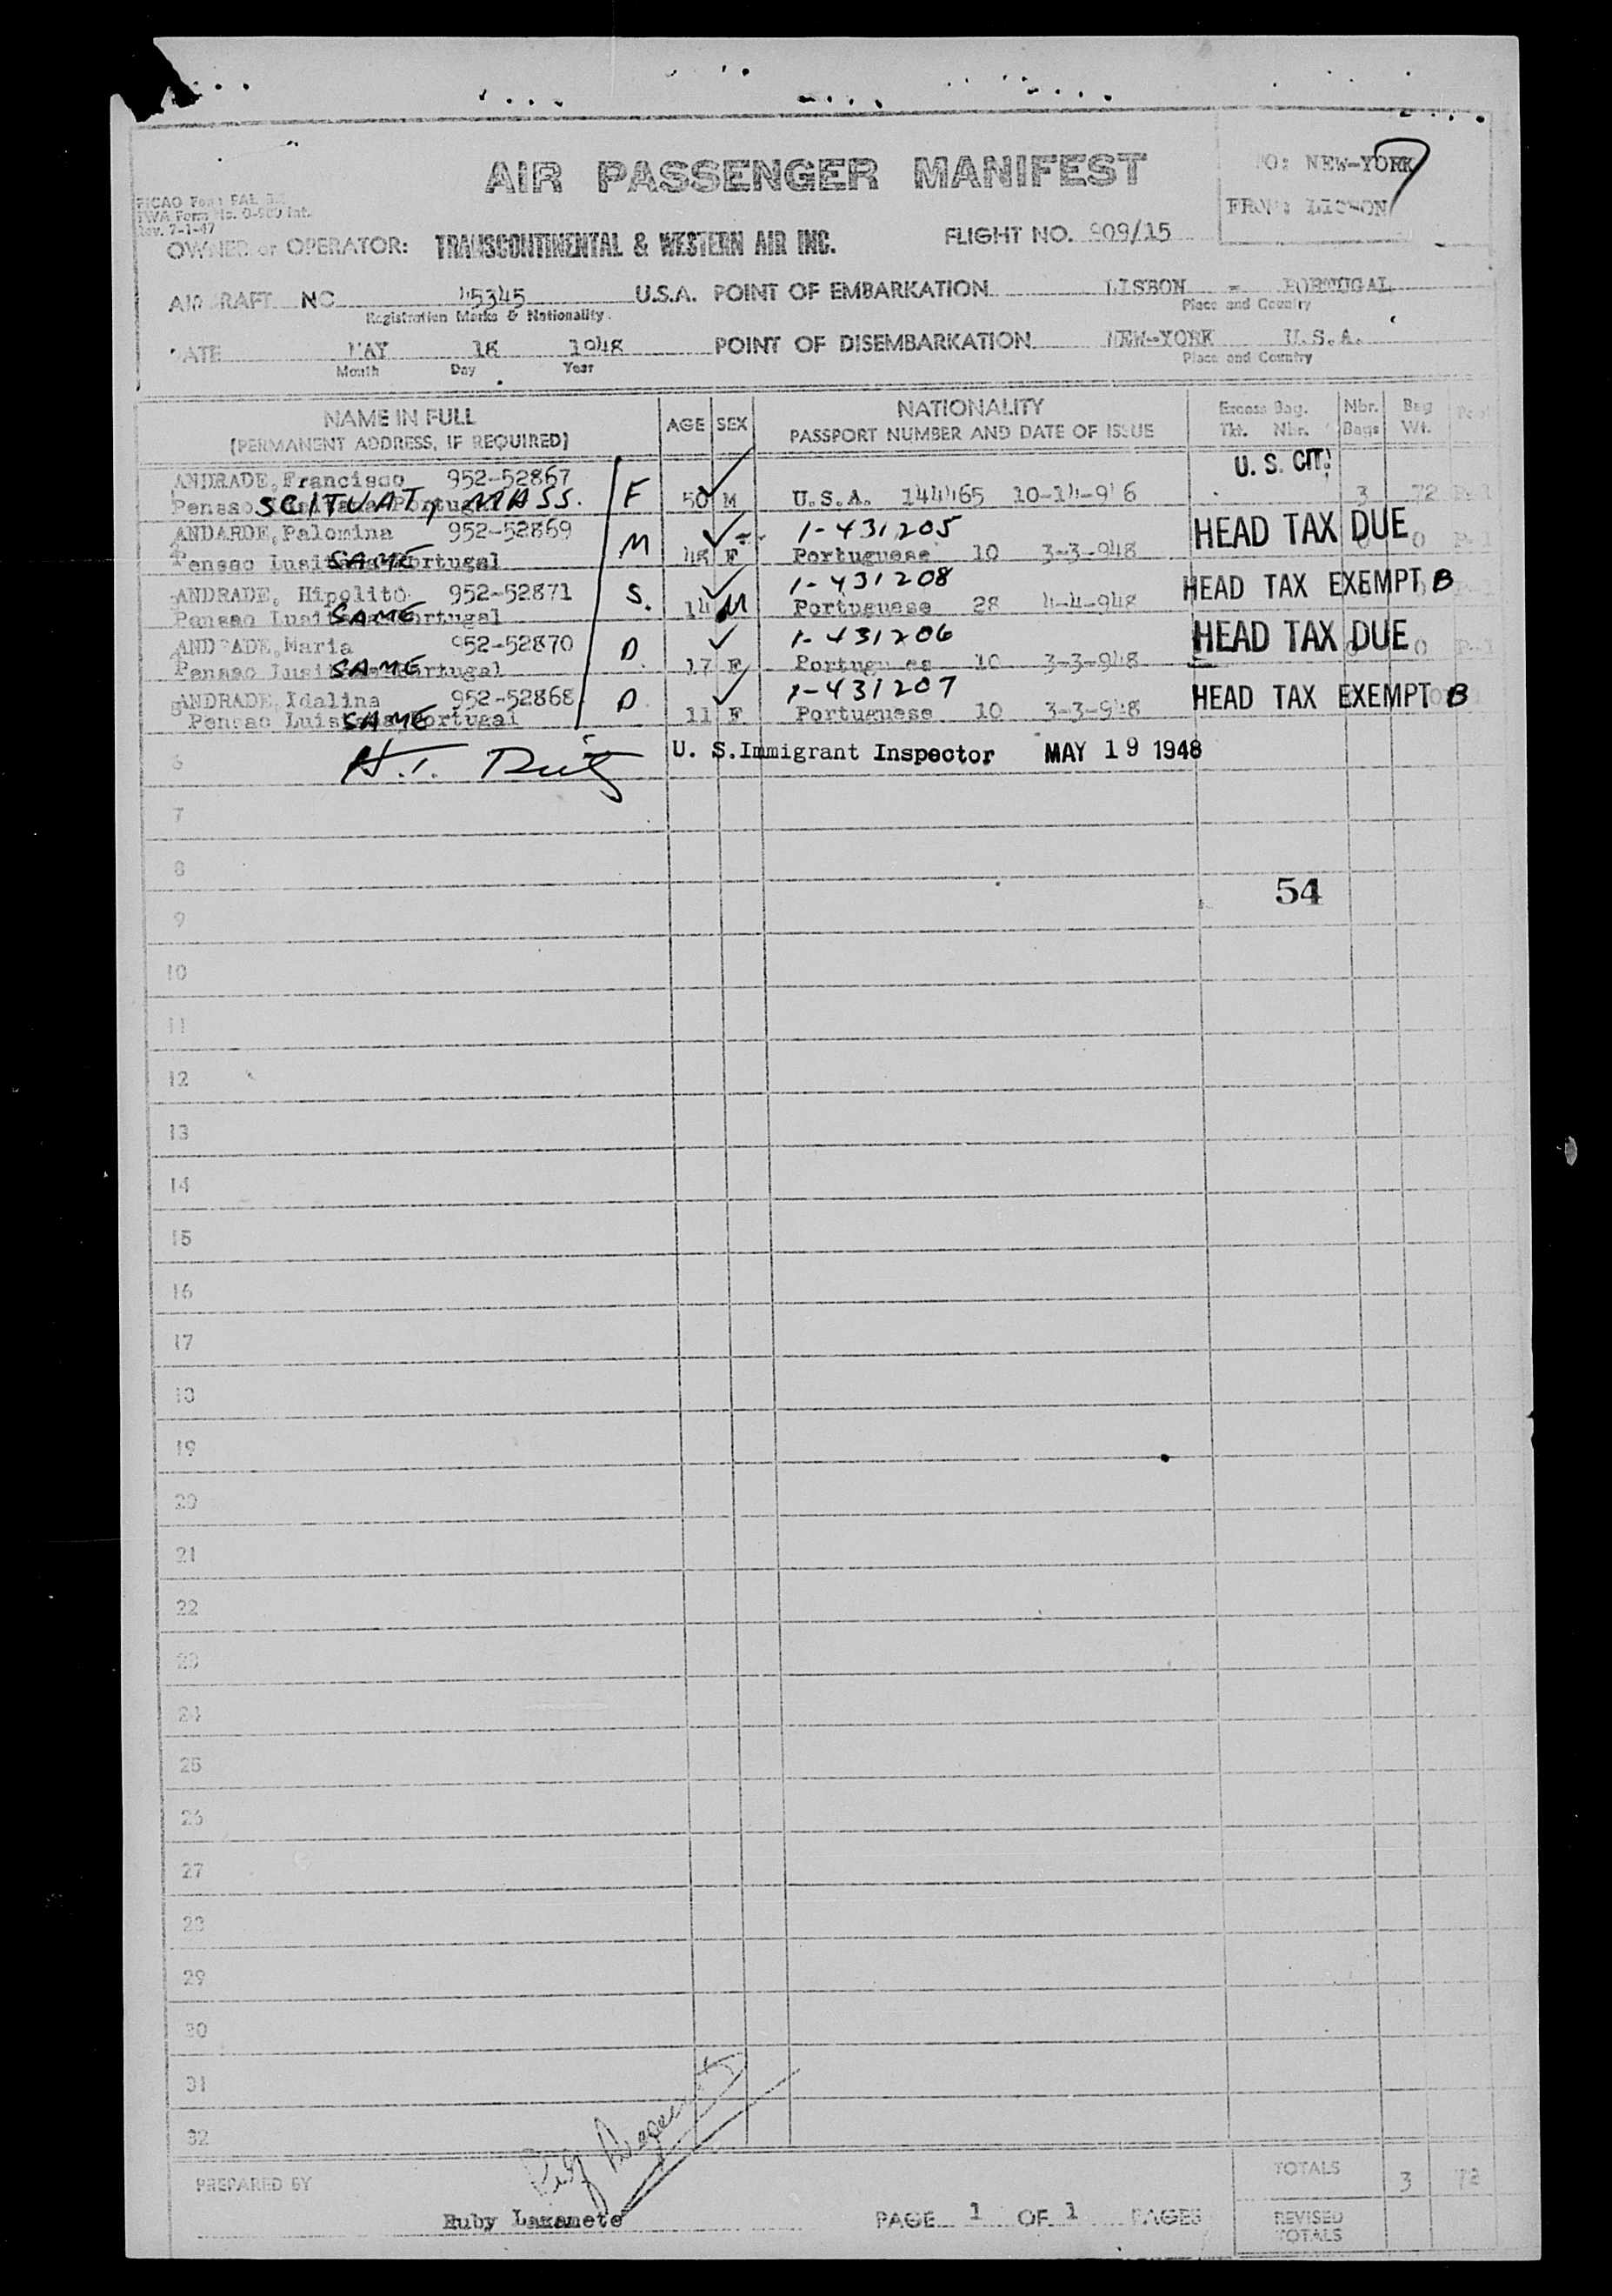 AIR PASSENGER MANIFEST
TO: NEW-YORK
FROM: LISBON
PICAO Form PAL
TWA Form No. 0-900 Int.
Rev. 7-1-47
OWNER or OPERATOR: TRANSCONTINENTAL & WESTERN AIR INC. FLIGHT NO. 909/15
AIRCRAFT NC 45345 U.S.A. POINT OF EMBARKATION LISBON - PORTUGAL
Registration Marks & Nationality. Place and Country
DATE MAY 18 1948 POINT OF DISEMBARKATION NEW-YORK U.S.A.
Month Day Year Place and Country
NAME IN FULL AGE SEX NATIONALITY Excess Bag. Mbr. Bag
(PERMANENT ADDRESS, IF REQUIRED) PASSPORT NUMBER AND DATE OF ISSUE Tkt. Nbr. Bags Wt.
ANDRADE, Francisco 952-52867 U. S. CIT.
Pensao Lusitana Portugal SCITUAT, MASS. F 50 M U.S.A. 144465 10-14-946 3 72 P-1
ANDARDE, Palomina 952-52869 1-431205 HEAD TAX DUE
Pensao Lusitana Portugal SAME M 48 F Portuguese 10 3-3-948 0 0 P-1
ANDRADE, Hipolito 952-52871 1-431208 HEAD TAX EXEMPT B
Pensao Lusitana Portugal SAME S. 14 M Portuguese 28 4-4-948
ANDRADE, Maria 952-52870 1-431206 HEAD TAX DUE
Pensao Lusitana Portugal SAME D. 17 F Portugu es 10 3-3-948 0 0 P-1
ANDRADE, Idalina 952-52868 1-431207 HEAD TAX EXEMPT B
Pensao Luistana Portugal SAME D. 11 F Portuguese 10 3-3-948
6 U. S. Immigrant Inspector MAY 19 1948
7
8
54
9
10
11
12
13
14
15
16
17
18
19
20
21
22
23
24
25
26
27
28
29
30
31
32
PREPARED BY TOTALS 3 72
Ruby PAGE 1 OF 1 PAGES REVISED
TOTALS